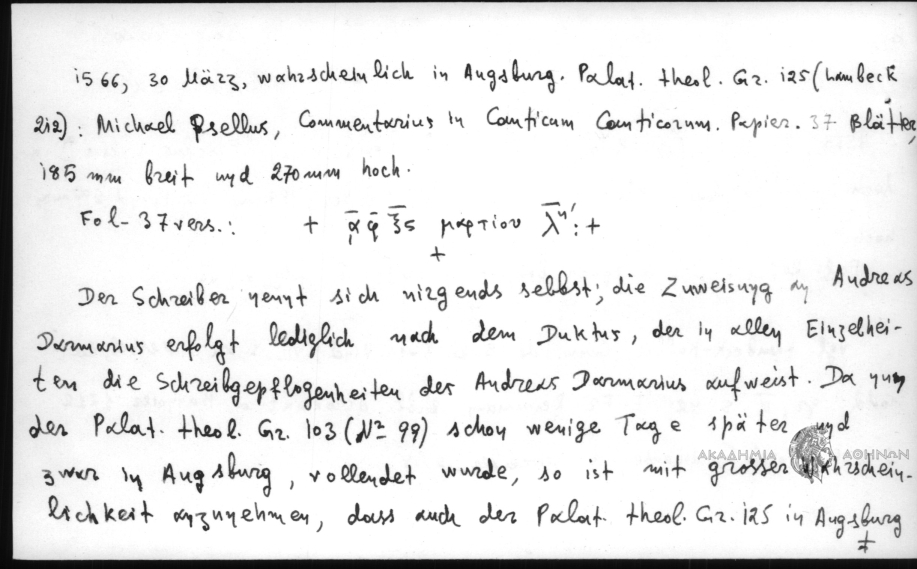 1566, 30 März, wahrscheinlich in Augsburg. Palat. theol. Gr. 125 (Lambeck
212): Michael Psellus, Commentarius in Canticum Canticorum. Papier. 37 Blätter,
185 mm breit und 270 mm hoch.
Fol. 37 vers.: + ͵α̅ φ̅ ξ̅ς μαρτίου λ̅ʹ : +
+
Der Schreiber nennt sich nirgends selbst; die Zuweisung an Andreas
Darmarius erfolgt lediglich nach dem Duktus, der in allen Einzelhei-
ten die Schreibgepflogenheiten des Andreas Darmarius aufweist. Da nun
der Palat. theol. Gr. 103 (Nº 99) schon wenige Tage später und
zwar in Augsburg, vollendet wurde, so ist mit grosser Wahrschein-
lichkeit anzunehmen, dass auch der Palat. theol. Gr. 125 in Augsburg
ΑΚΑΔΗΜΙΑ ΑΘΗΝΩΝ